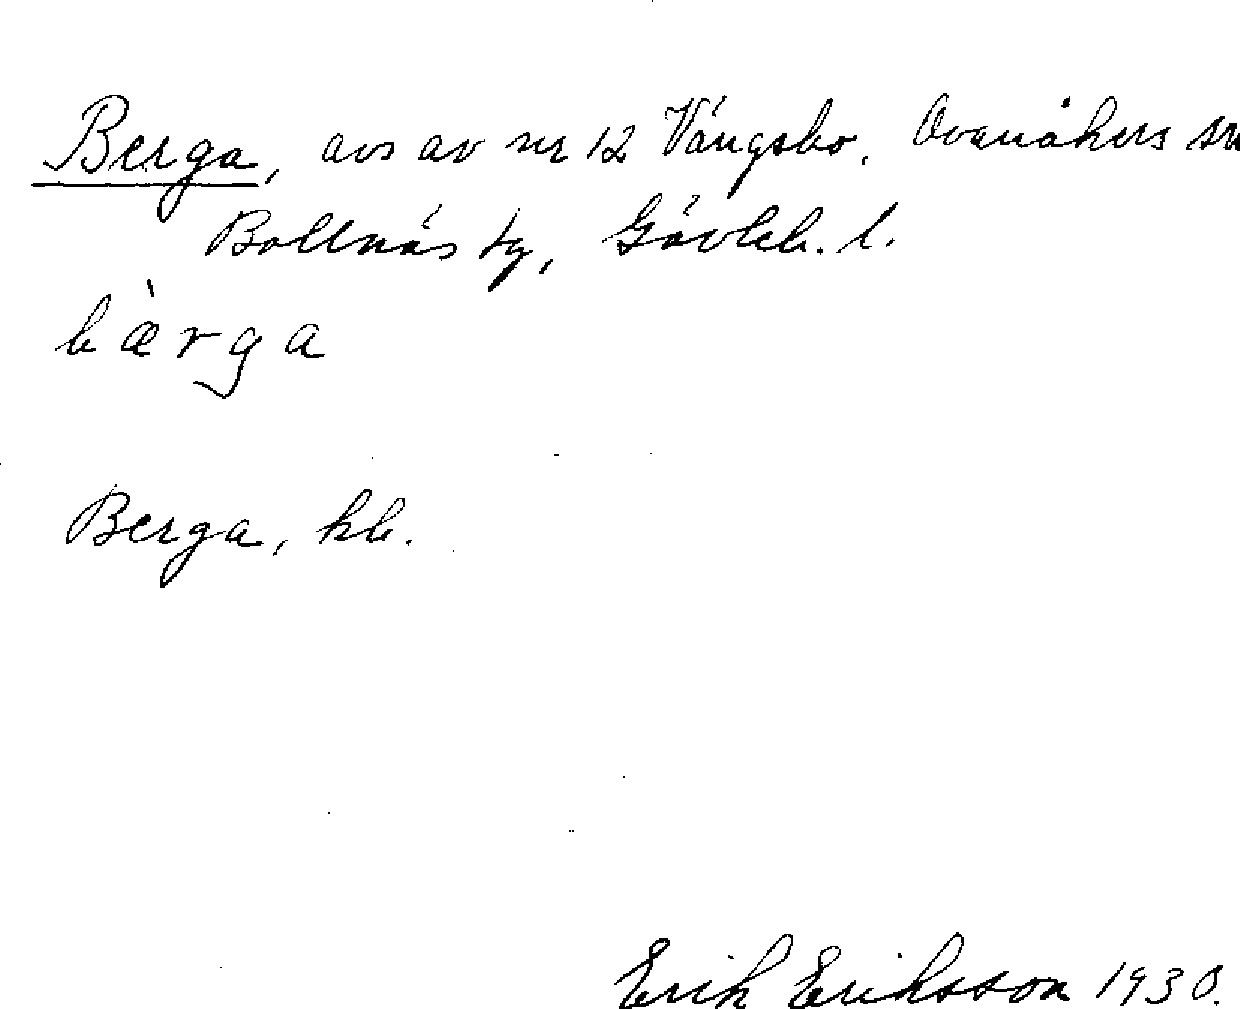 Berga, avs av nr 12 Vängsbo. Ovanåkers sn
Bollnäs tg, Gävleb. l.
bæ̀rga
Berga, kb.
Erik Eriksson 1930.